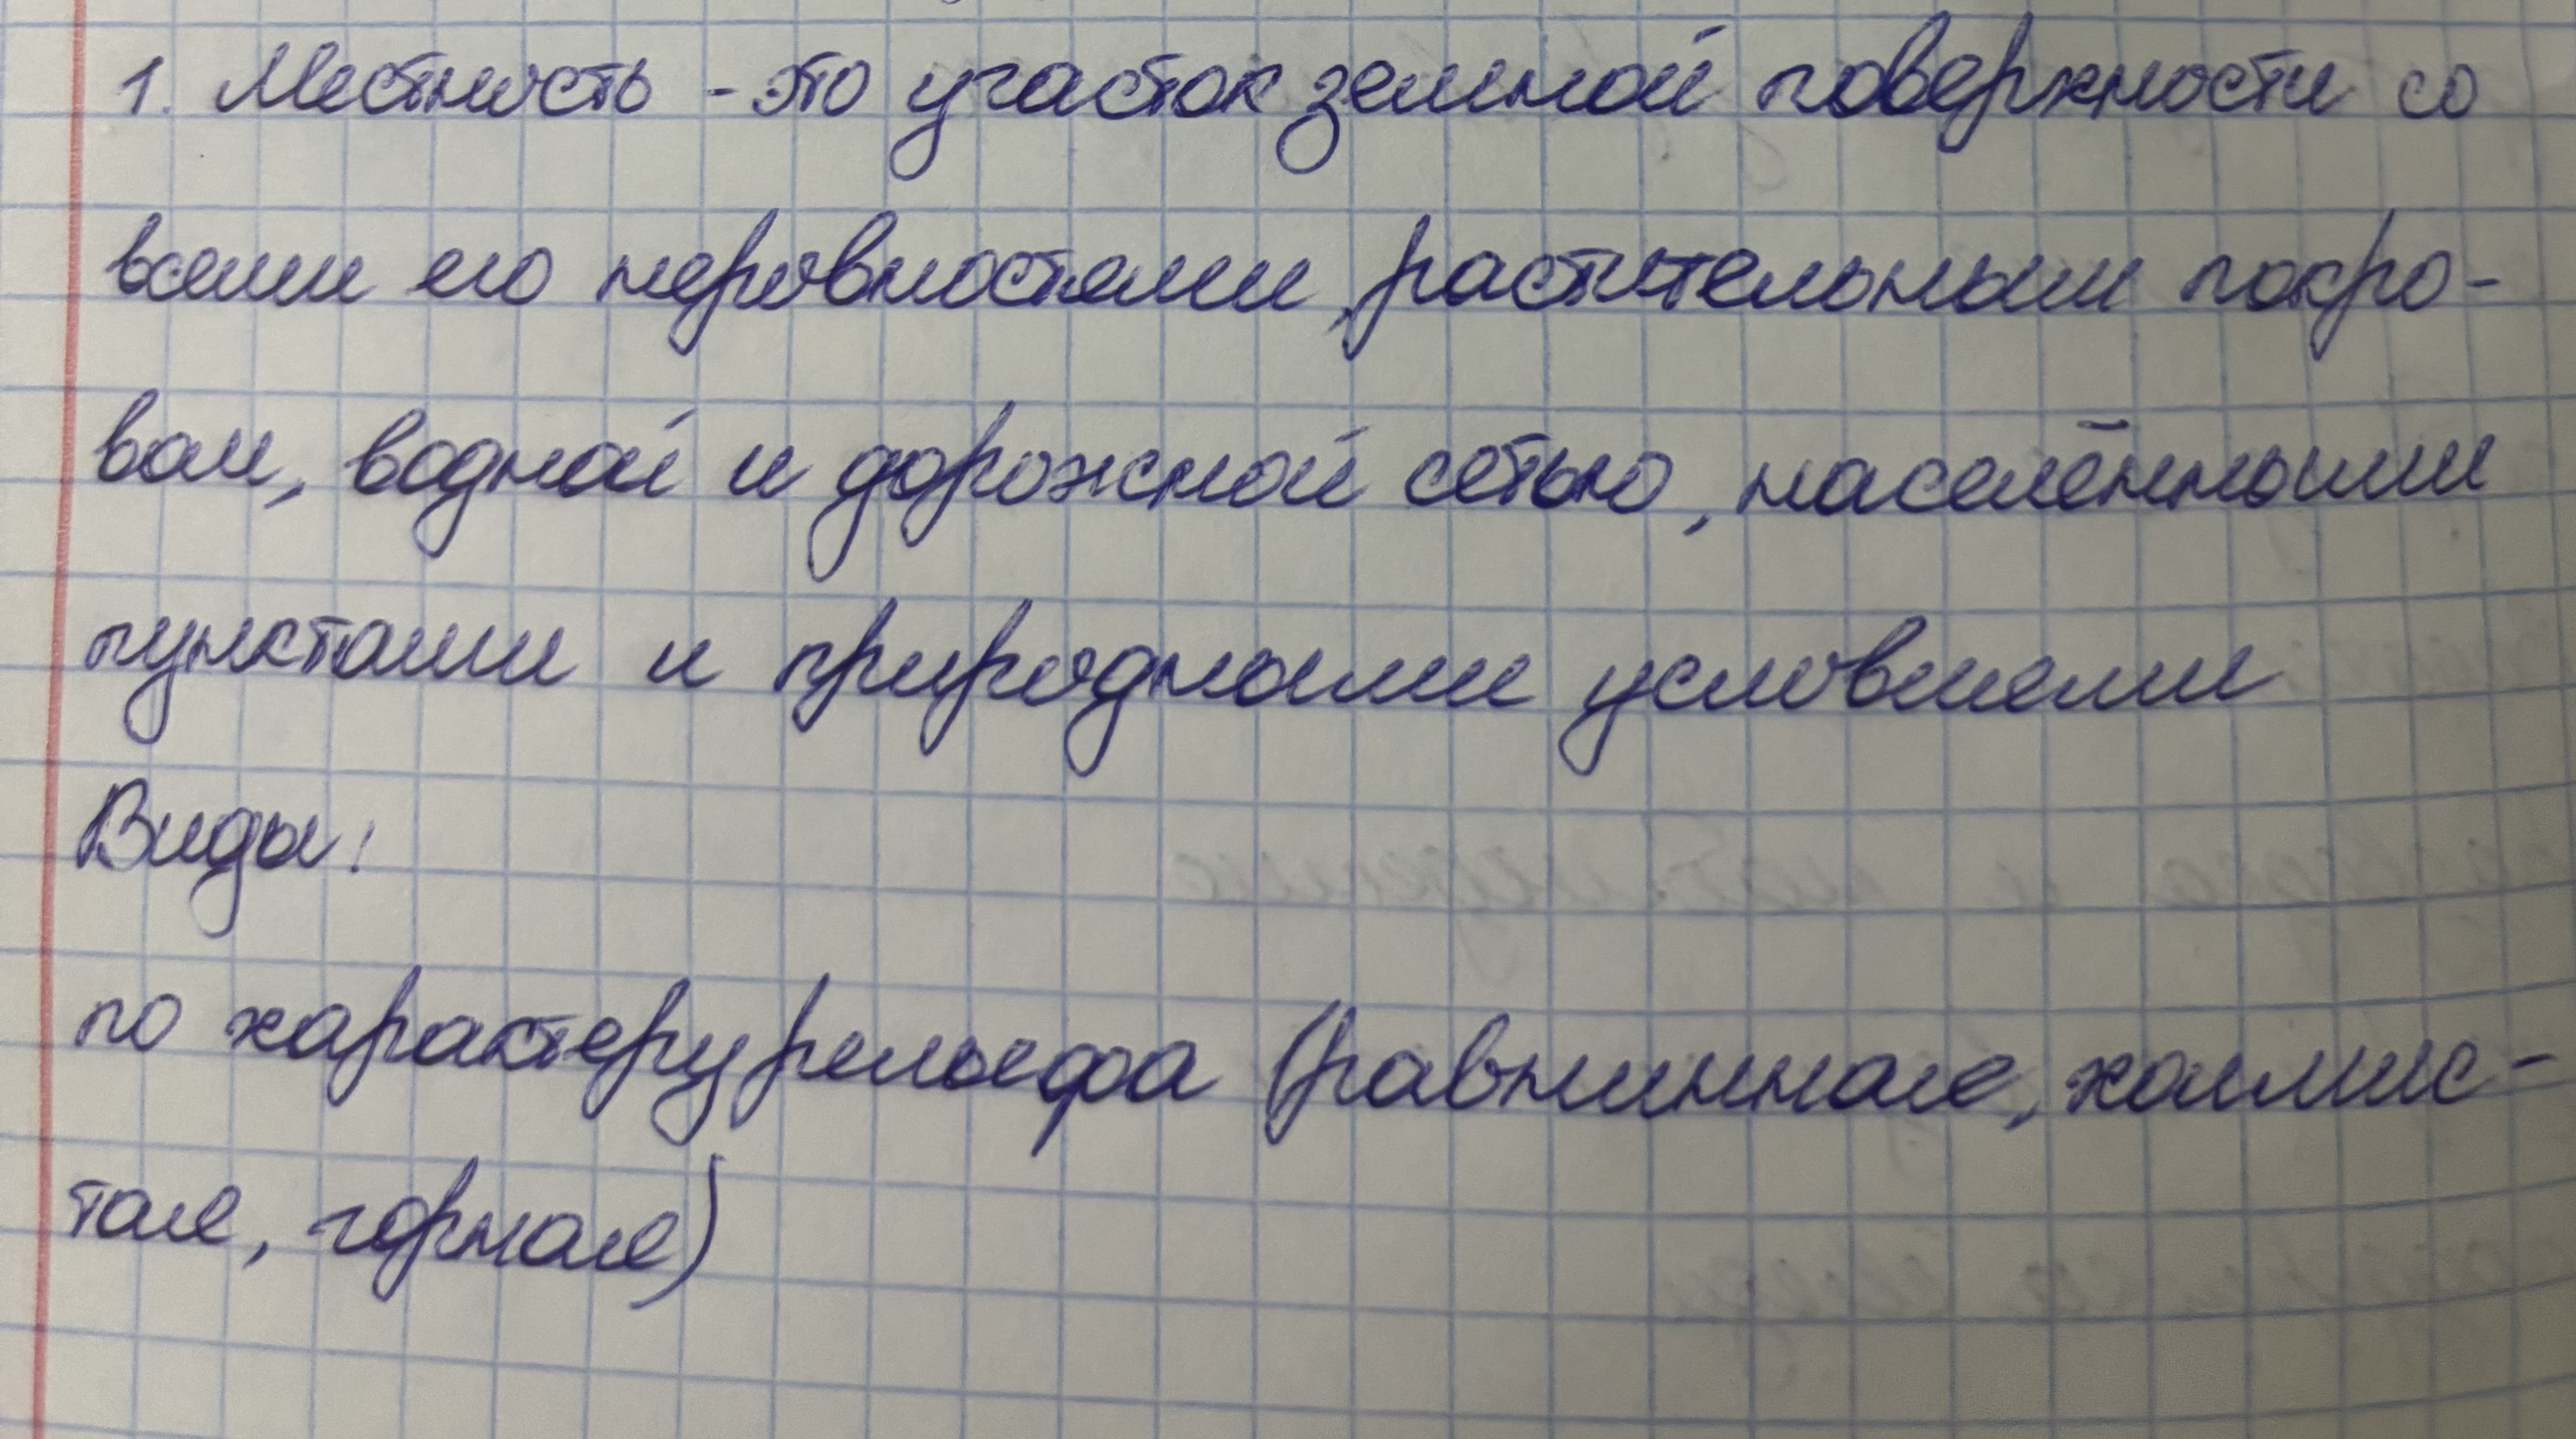 1. Местность - это участок земной поверхности со
всеми его неровностями, растительным покро-
вом, водной и дорожной сетью, населёнными
пунктами и природными условиями
Виды:
по характеру рельефа (равнинная, холмис-
тая, горная)